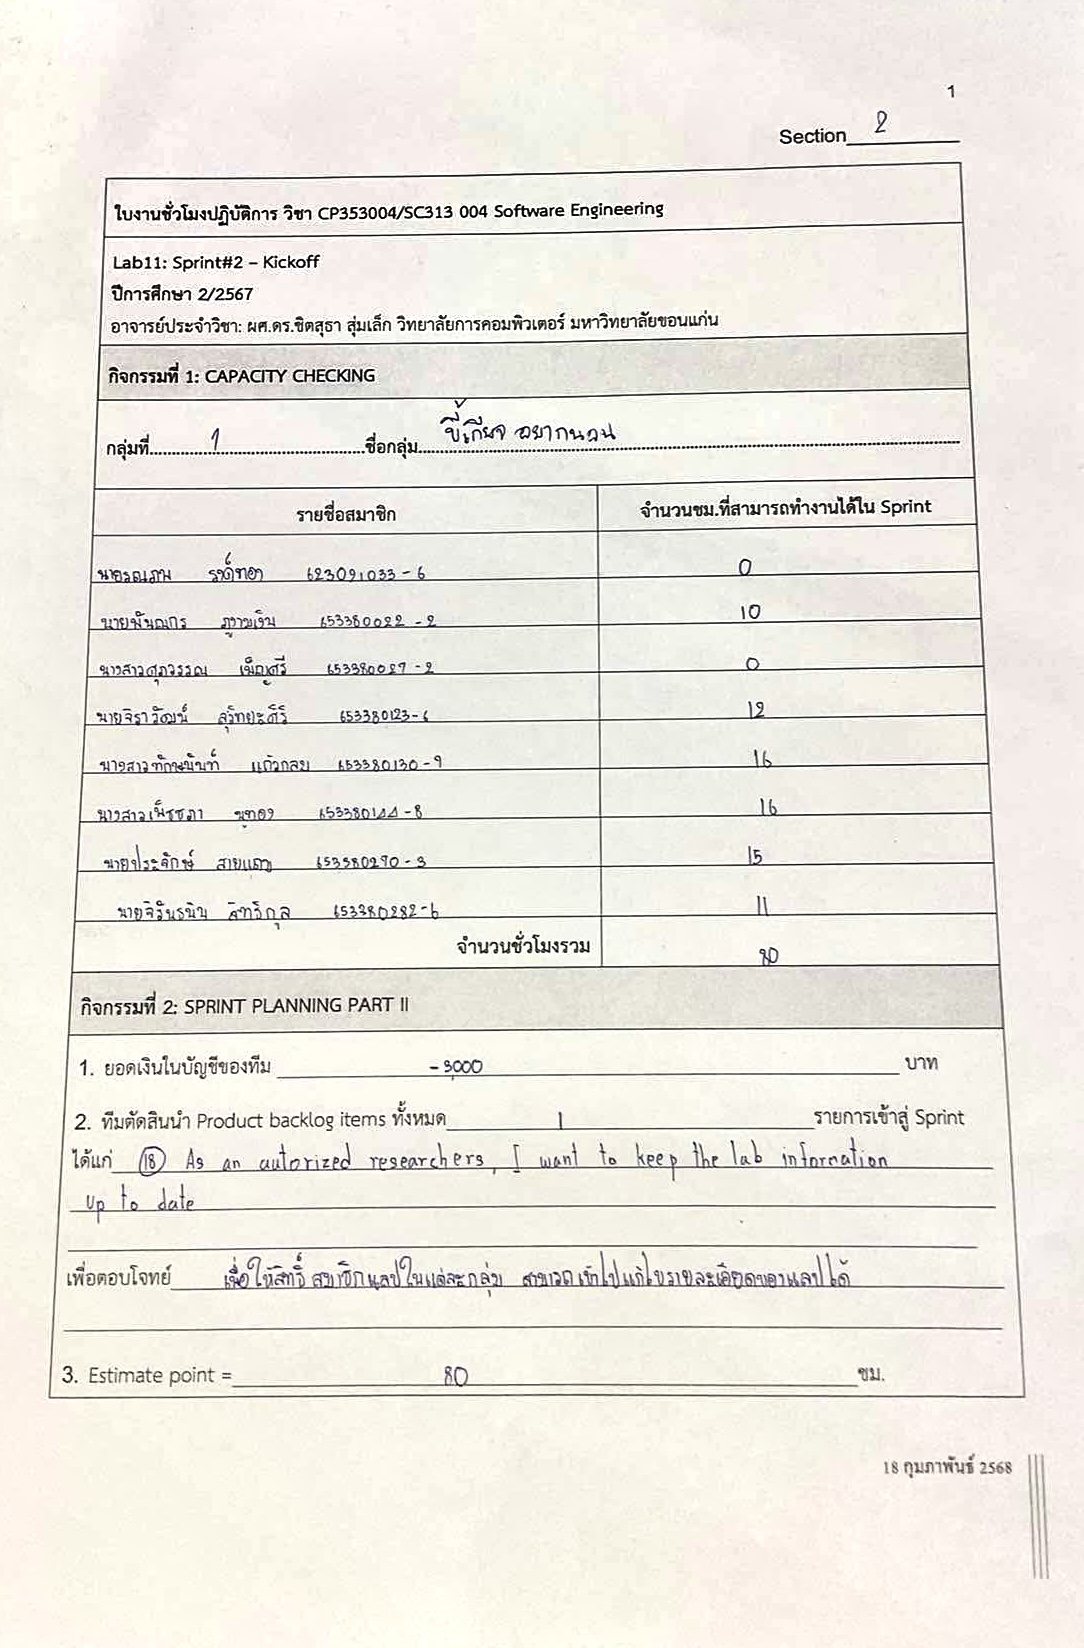 1
Section 2
ใบงานชั่วโมงปฏิบัติการ วิชา CP353004/SC313 004 Software Engineering
Lab11: Sprint#2 – Kickoff
ปีการศึกษา 2/2567
อาจารย์ประจำวิชา: ผศ.ดร.ชิตสุธา สุ่มเล็ก วิทยาลัยการคอมพิวเตอร์ มหาวิทยาลัยขอนแก่น
กิจกรรมที่ 1: CAPACITY CHECKING
กลุ่มที่ 1 ชื่อกลุ่ม ขี้เกียจ อยากนอน
รายชื่อสมาชิก จำนวนชม.ที่สามารถทำงานได้ใน Sprint
623091033-6 0
นายพันณกร 653380022-2 10
นางสาวศุภวรรณ เพ็ญศรี 653380027-2 0
นายจิราวัฒน์ สุริทยะศิริ 653380123-6 12
นางสาวทักษนันท์ แก้วกลม 653380130-9 16
นางสาวเพ็ชชภา ชูทอง 653380144-8 16
นายประจักษ์ สายแถม 653380270-3 15
สิทธิกุล 653380282-6 11
จำนวนชั่วโมงรวม 80
กิจกรรมที่ 2: SPRINT PLANNING PART II
1. ยอดเงินในบัญชีของทีม -3,000 บาท
2. ทีมตัดสินนำ Product backlog items ทั้งหมด 1 รายการเข้าสู่ Sprint
ได้แก่ (18) As an autorized researchers, I want to keep the lab information
up to date
เพื่อตอบโจทย์ เพื่อให้สิทธิ์ สมาชิกแลปในแต่ละกลุ่ม สามารถเข้าไปแก้ไขรายละเอียดของแลปได้
3. Estimate point = 80 ชม.
18 กุมภาพันธ์ 2568